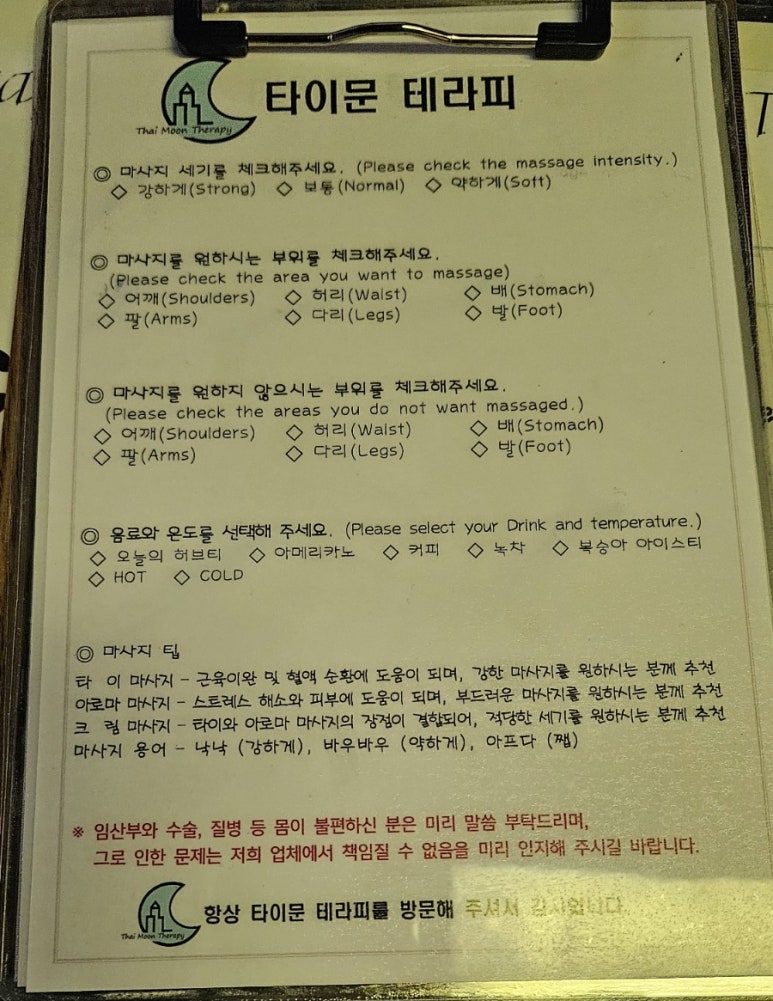 타이문 테라피
Thai Moon Therapy
◎ 마사지 세기를 체크해주세요. (Please check the massage intensity.)
◇ 강하게(Strong) ◇ 보통(Normal) ◇ 약하게(Soft)
◎ 마사지를 원하시는 부위를 체크해주세요.
(Please check the area you want to massage)
◇ 어깨(Shoulders) ◇ 허리(Waist) ◇ 배(Stomach)
◇ 팔(Arms) ◇ 다리(Legs) ◇ 발(Foot)
◎ 마사지를 원하지 않으시는 부위를 체크해주세요.
(Please check the areas you do not want massaged.)
◇ 어깨(Shoulders) ◇ 허리(Waist) ◇ 배(Stomach)
◇ 팔(Arms) ◇ 다리(Legs) ◇ 발(Foot)
◎ 음료와 온도를 선택해 주세요. (Please select your Drink and temperature.)
◇ 오늘의 허브티 ◇ 아메리카노 ◇ 커피 ◇ 녹차 ◇ 복숭아 아이스티
◇ HOT ◇ COLD
◎ 마사지 팁
타 이 마사지 - 근육이완 및 혈액 순환에 도움이 되며, 강한 마사지를 원하시는 분께 추천
아로마 마사지 - 스트레스 해소와 피부에 도움이 되며, 부드러운 마사지를 원하시는 분께 추천
크 림 마사지 - 타이와 아로마 마사지의 장점이 결합되어, 적당한 세기를 원하시는 분께 추천
마사지 용어 - 낙낙 (강하게), 바우바우 (약하게), 아프다 (쨉)
※ 임산부와 수술, 질병 등 몸이 불편하신 분은 미리 말씀 부탁드리며,
그로 인한 문제는 저희 업체에서 책임질 수 없음을 미리 인지해 주시길 바랍니다.
항상 타이문 테라피를 방문해 주셔서 감사합니다.
Thai Moon Therapy